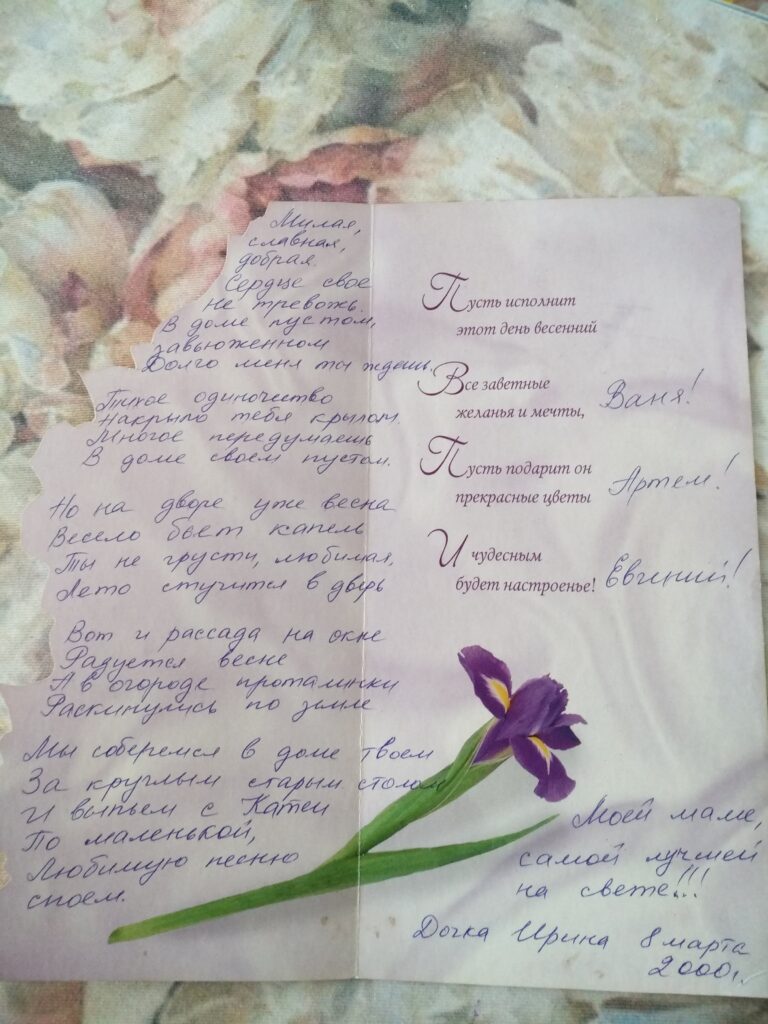 Милая,
славная,
добрая.
Сердце свое
не тревожь.
В доме пустом,
завьюженном
Долго меня ты ждешь.
Тихое одиночество
Накрыло тебя крылом.
Многое передумаешь
В доме своем пустом.
Но на дворе уже весна
Весело бьет капель
Ты не грусти, любимая,
Лето стучится в дверь
Вот и рассада на окне
Радуется весне
А в огороде проталинки
Раскинулись по земле
Мы соберемся в доме твоем
За круглым старым столом
И выпьем с Катей
По маленькой,
Любимую песню
споем.
Пусть исполнит
этот день весенний
Все заветные
желанья и мечты,
Ваня!
Пусть подарит он
прекрасные цветы
Артем!
И чудесным
будет настроенье!
Евгений!
Моей маме,
самой лучшей
на свете!!!
Дочка Ирина 8 марта
2000г.